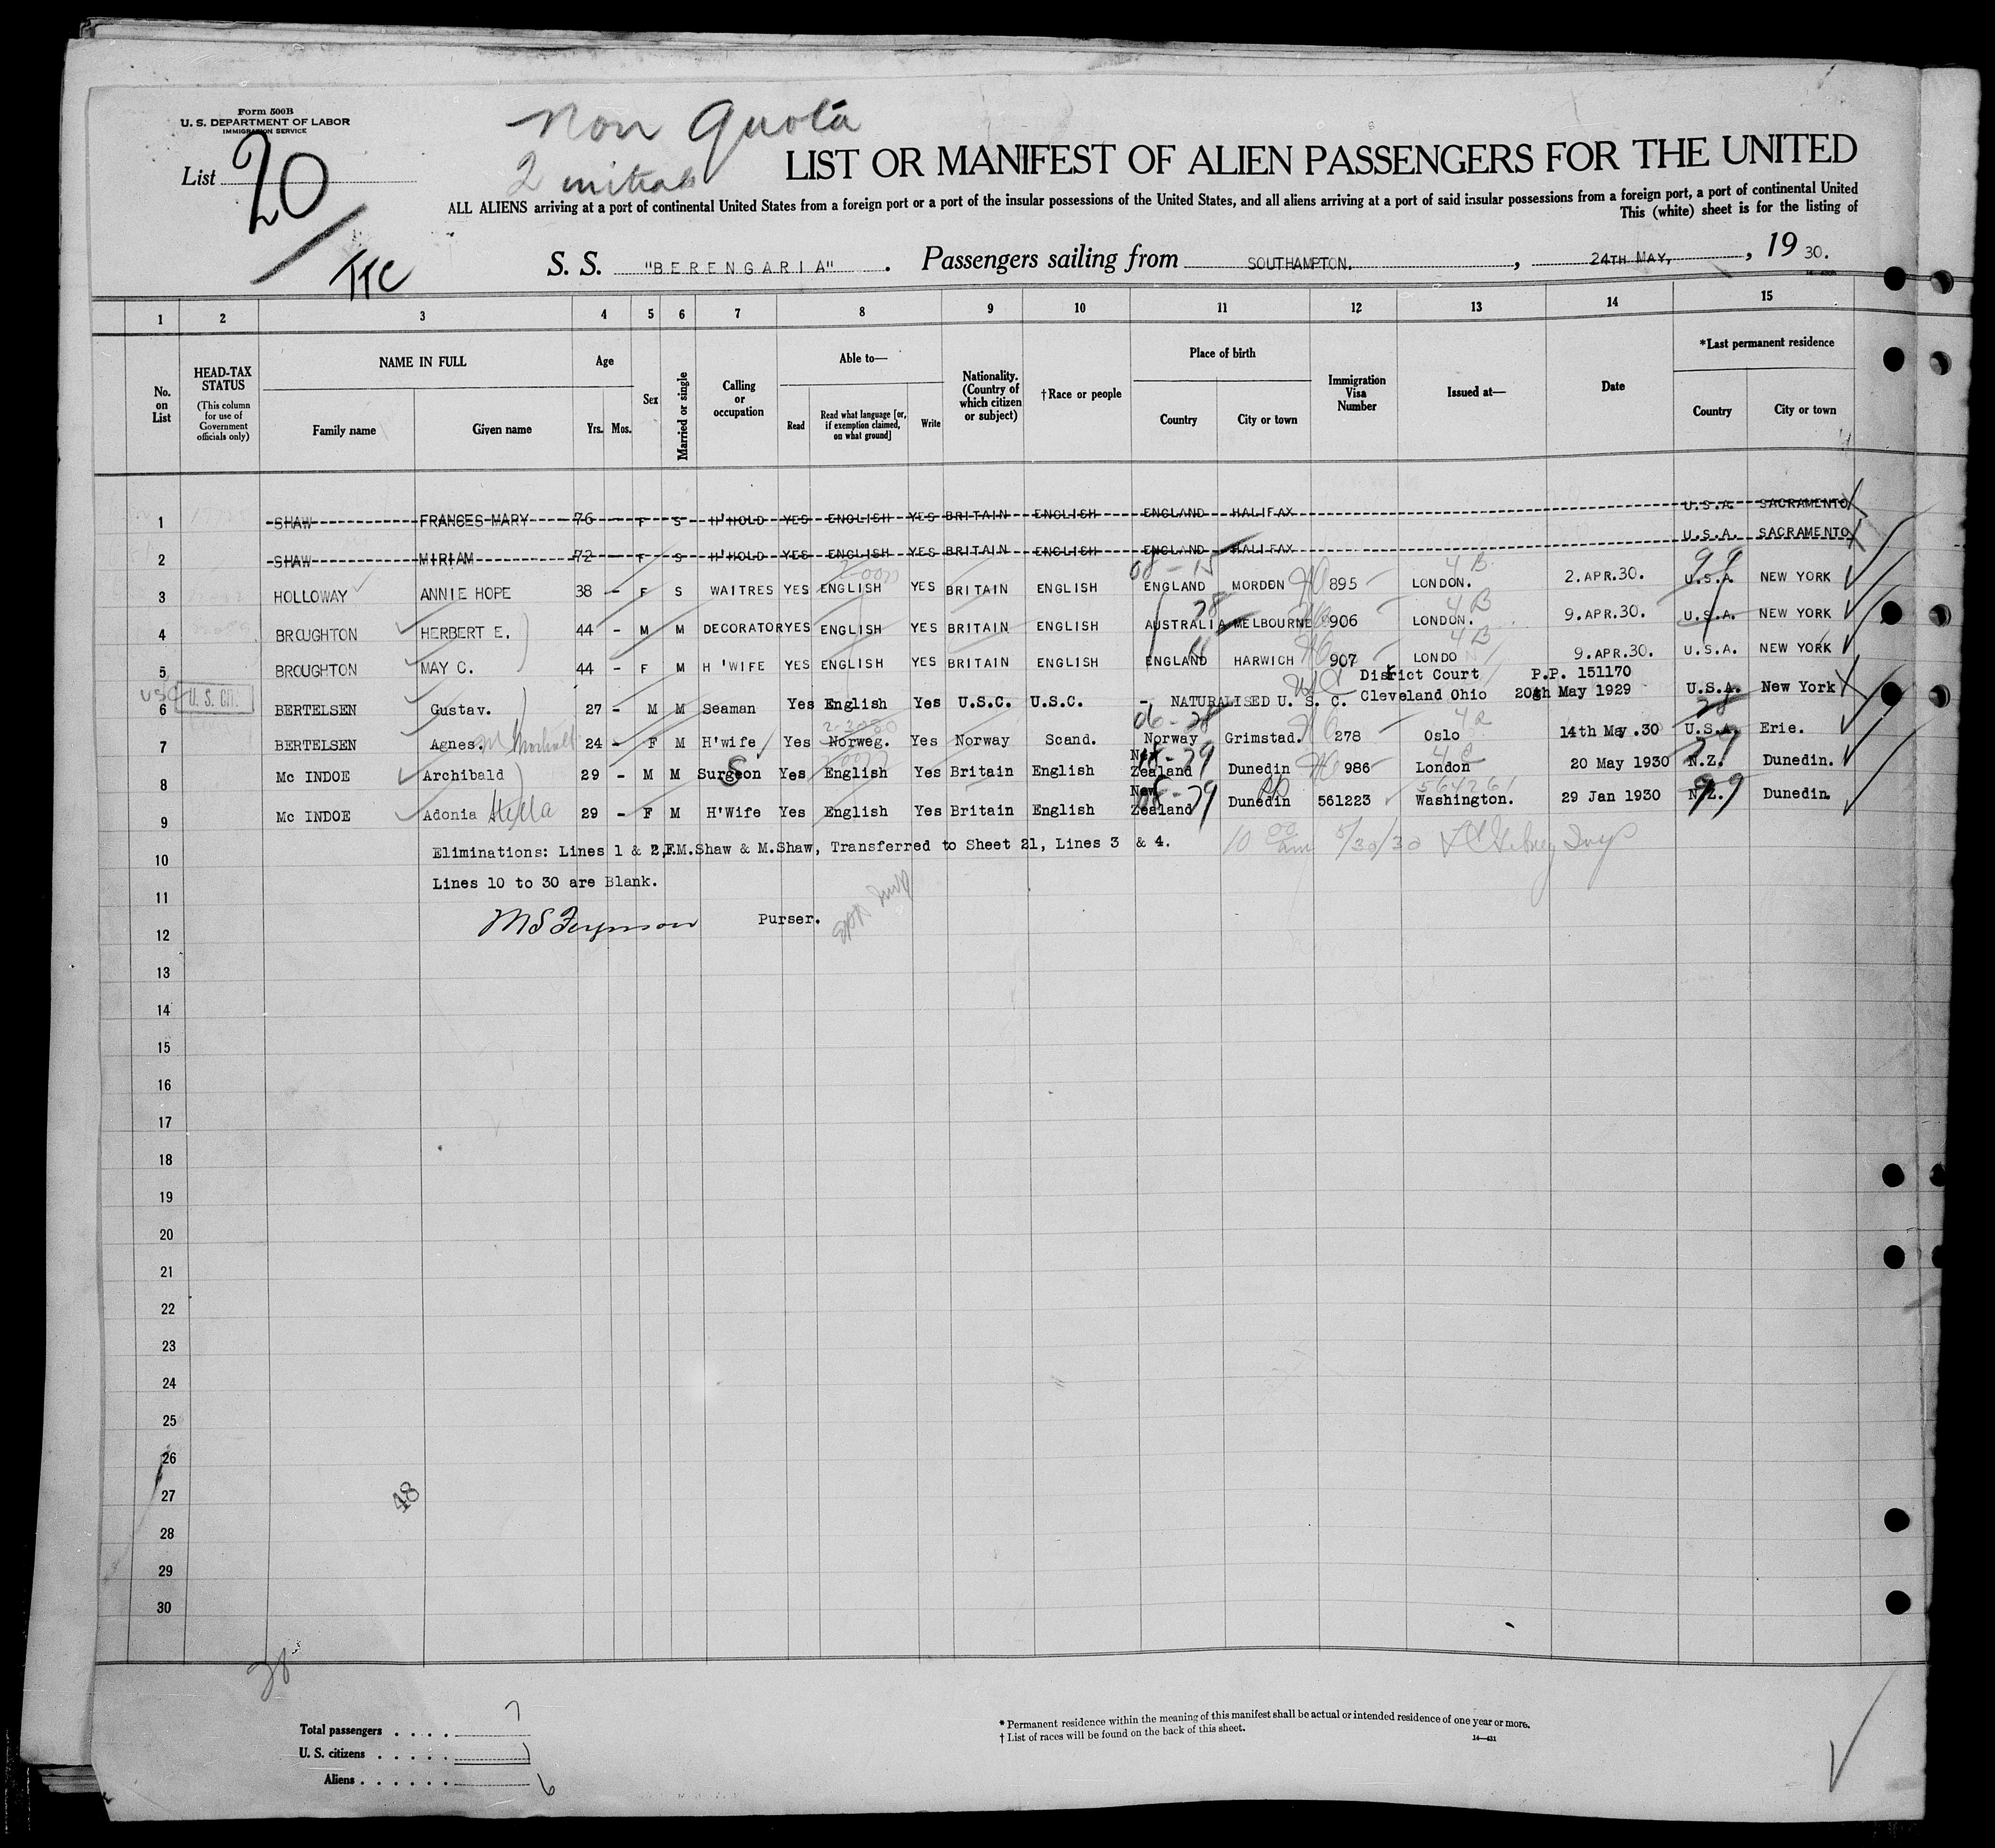 Form 500B
U. S. DEPARTMENT OF LABOR
IMMIGRATION SERVICE
Non Quota
2 initials
List 20
TTC
LIST OR MANIFEST OF ALIEN PASSENGERS FOR THE UNITED
ALL ALIENS arriving at a port of continental United States from a foreign port or a port of the insular possessions of the United States, and all aliens arriving at a port of said insular possessions from a foreign port, a port of continental United
This (white) sheet is for the listing of
S. S. "BERENGARIA" . Passengers sailing from SOUTHAMPTON. , 24TH MAY, , 19 30.
1 2 3 4 5 6 7 8 9 10 11 12 13 14 15
No. on List
HEAD-TAX STATUS (This column for use of Government officials only)
NAME IN FULL Family name Given name
Age Yrs. Mos.
Sex
Married or single
Calling or occupation
Able to— Read Read what language [or, if exemption claimed, on what ground] Write
Nationality. (Country of which citizen or subject)
†Race or people
Place of birth Country City or town
Immigration Visa Number
Issued at—
Date
*Last permanent residence Country City or town
1 SHAW FRANCES MARY 76 - F S H'HOLD YES ENGLISH YES BRITAIN ENGLISH ENGLAND HALIFAX U.S.A. SACRAMENTO
2 SHAW MIRIAM 72 - F S H'HOLD YES ENGLISH YES BRITAIN ENGLISH ENGLAND HALIFAX U.S.A. SACRAMENTO
3 HOLLOWAY ANNIE HOPE 38 - F S WAITRES YES ENGLISH YES BRITAIN ENGLISH ENGLAND MORDEN 895 LONDON. 4B 2.APR.30. U.S.A NEW YORK
4 BROUGHTON HERBERT E. 44 - M M DECORATOR YES ENGLISH YES BRITAIN ENGLISH AUSTRALIA MELBOURNE 906 LONDON. 4B 9.APR.30. U.S.A. NEW YORK
5 BROUGHTON MAY C. 44 - F M H'WIFE YES ENGLISH YES BRITAIN ENGLISH ENGLAND HARWICH 907 LONDO 4B 9.APR.30. U.S.A. NEW YORK
District Court P.P. 151170
USC U. S. CIT.
6 BERTELSEN Gustav. 27 - M M Seaman Yes English Yes U.S.C. U.S.C. -, NATURALISED U. S. C. Cleveland Ohio 20th May 1929 U.S.A. New York
7 BERTELSEN Agnes. 24 - F M H'wife Yes Norweg. Yes Norway Scand. Norway Grimstad. 278 Oslo 14th May.30 U.S.A. Erie.
8 Mc INDOE Archibald 29 - M M Surgeon Yes English Yes Britain English New Zealand Dunedin 986 London 20 May 1930 N.Z. Dunedin.
9 Mc INDOE Adonia Stella 29 - F M H'Wife Yes English Yes Britain English New Zealand Dunedin 561223 Washington. 564261 29 Jan 1930 N.Z. Dunedin.
10 Eliminations: Lines 1 & 2,F.M.Shaw & M.Shaw, Transferred to Sheet 21, Lines 3 & 4. 10 00 am 5/30/30
11 Lines 10 to 30 are Blank.
12 M S Ferguson Purser.
13
14
15
16
17
18
19
20
21
22
23
24
25
26
27
28
29
30
48
Total passengers . . . . 7
U. S. citizens . . . . . 1
Aliens . . . . . . 6
* Permanent residence within the meaning of this manifest shall be actual or intended residence of one year or more.
† List of races will be found on the back of this sheet.
14—431